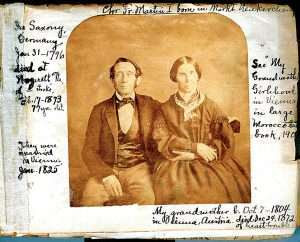 Chor Sr Martin I born in Markt Neukirchen
Saxony,
Germany
Jan 31-1796
died at
Nazareth Pa
of stroke,
Feb. 17-1873
77 yrs old.
They were
married
in Vienna,
June 1825
See My
Grandmother's
Girlhood
in Vienna
in large
Morocco
book, 190
My grandmother b. Oct 7-1804
in Vienna, Austria. died Dec 24, 1872
of heart trouble